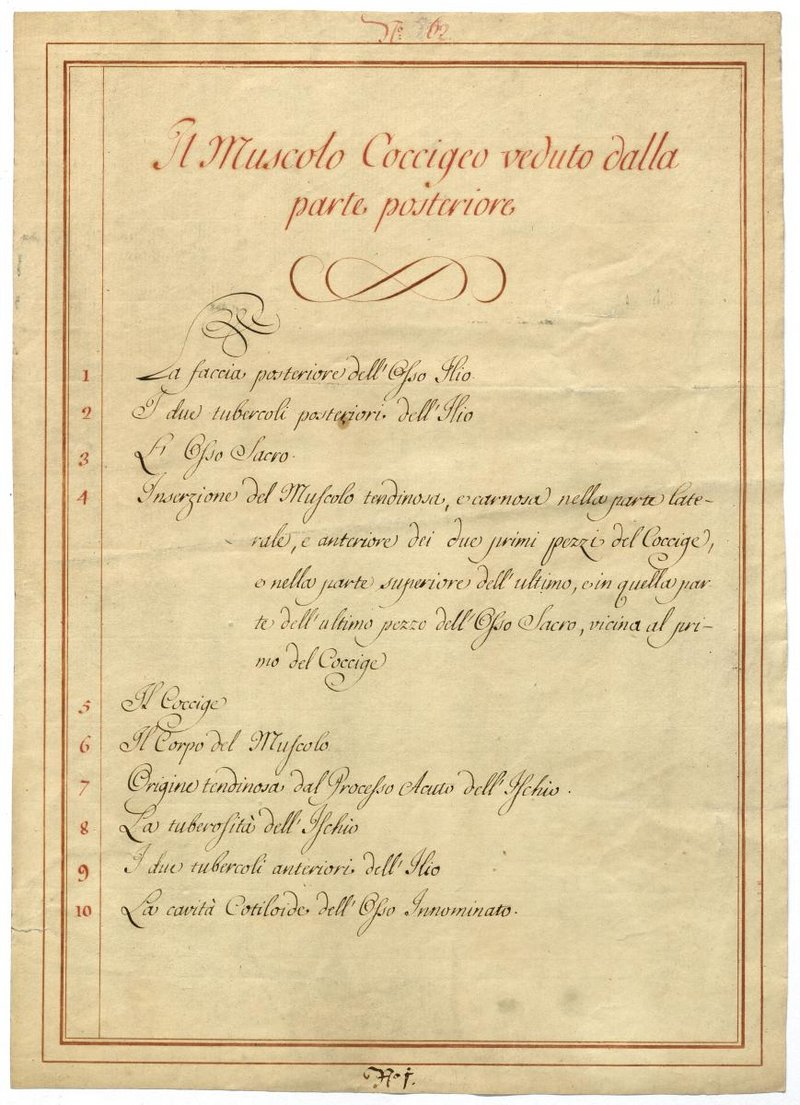 No. 62
Il Muscolo Coccigeo veduto dalla
parte posteriore
1 La faccia posteriore dell' Osso Ilio.
2 I due tubercoli posteriori dell' Ilio
3 L' Osso Sacro.
4 Inserzione del Muscolo tendinosa, e carnosa nella parte late-
rale, e anteriore dei due primi pezzi del Coccige,
e nella parte superiore dell' ultimo, e in quella par
te dell' ultimo pezzo dell' Osso Sacro, vicina al pri-
mo del Coccige
5 Il Coccige
6 Il Corpo del Muscolo
7 Origine tendinosa dal Processo Acuto dell' Ischio.
8 La tuberosità dell' Ischio
9 I due tubercoli anteriori dell' Ilio
10 La cavità Cotiloide dell' Osso Innominato.
No. 1.